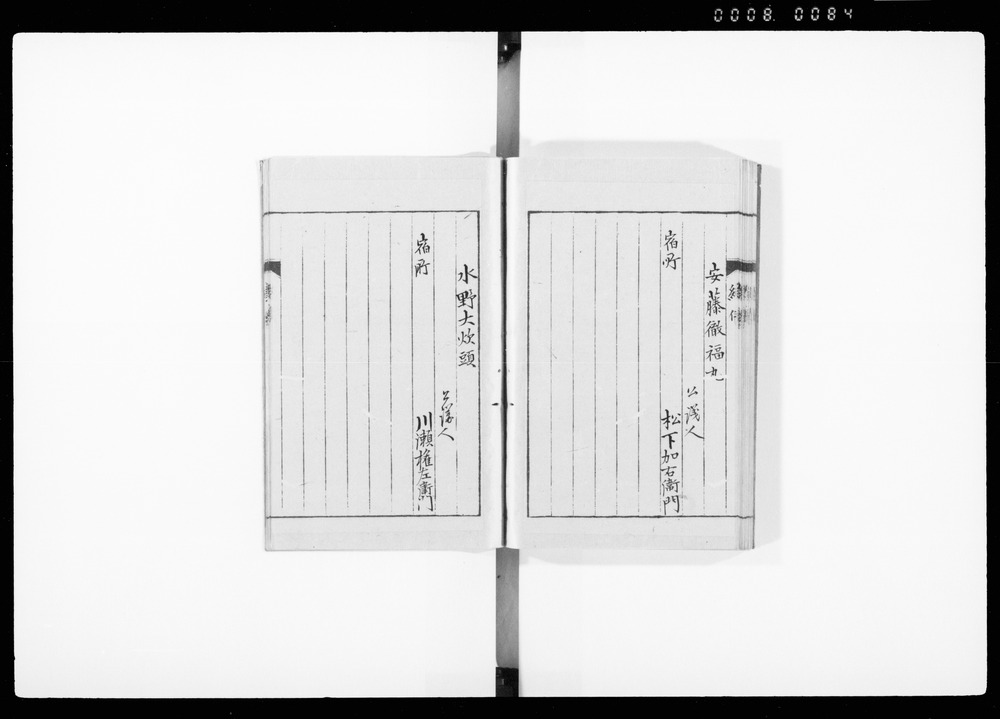 0008. 0084
安藤徹福丸
公議人
宿所
松下加右衛門
水野大炊頭
公議人
宿所
川瀬権左衛門